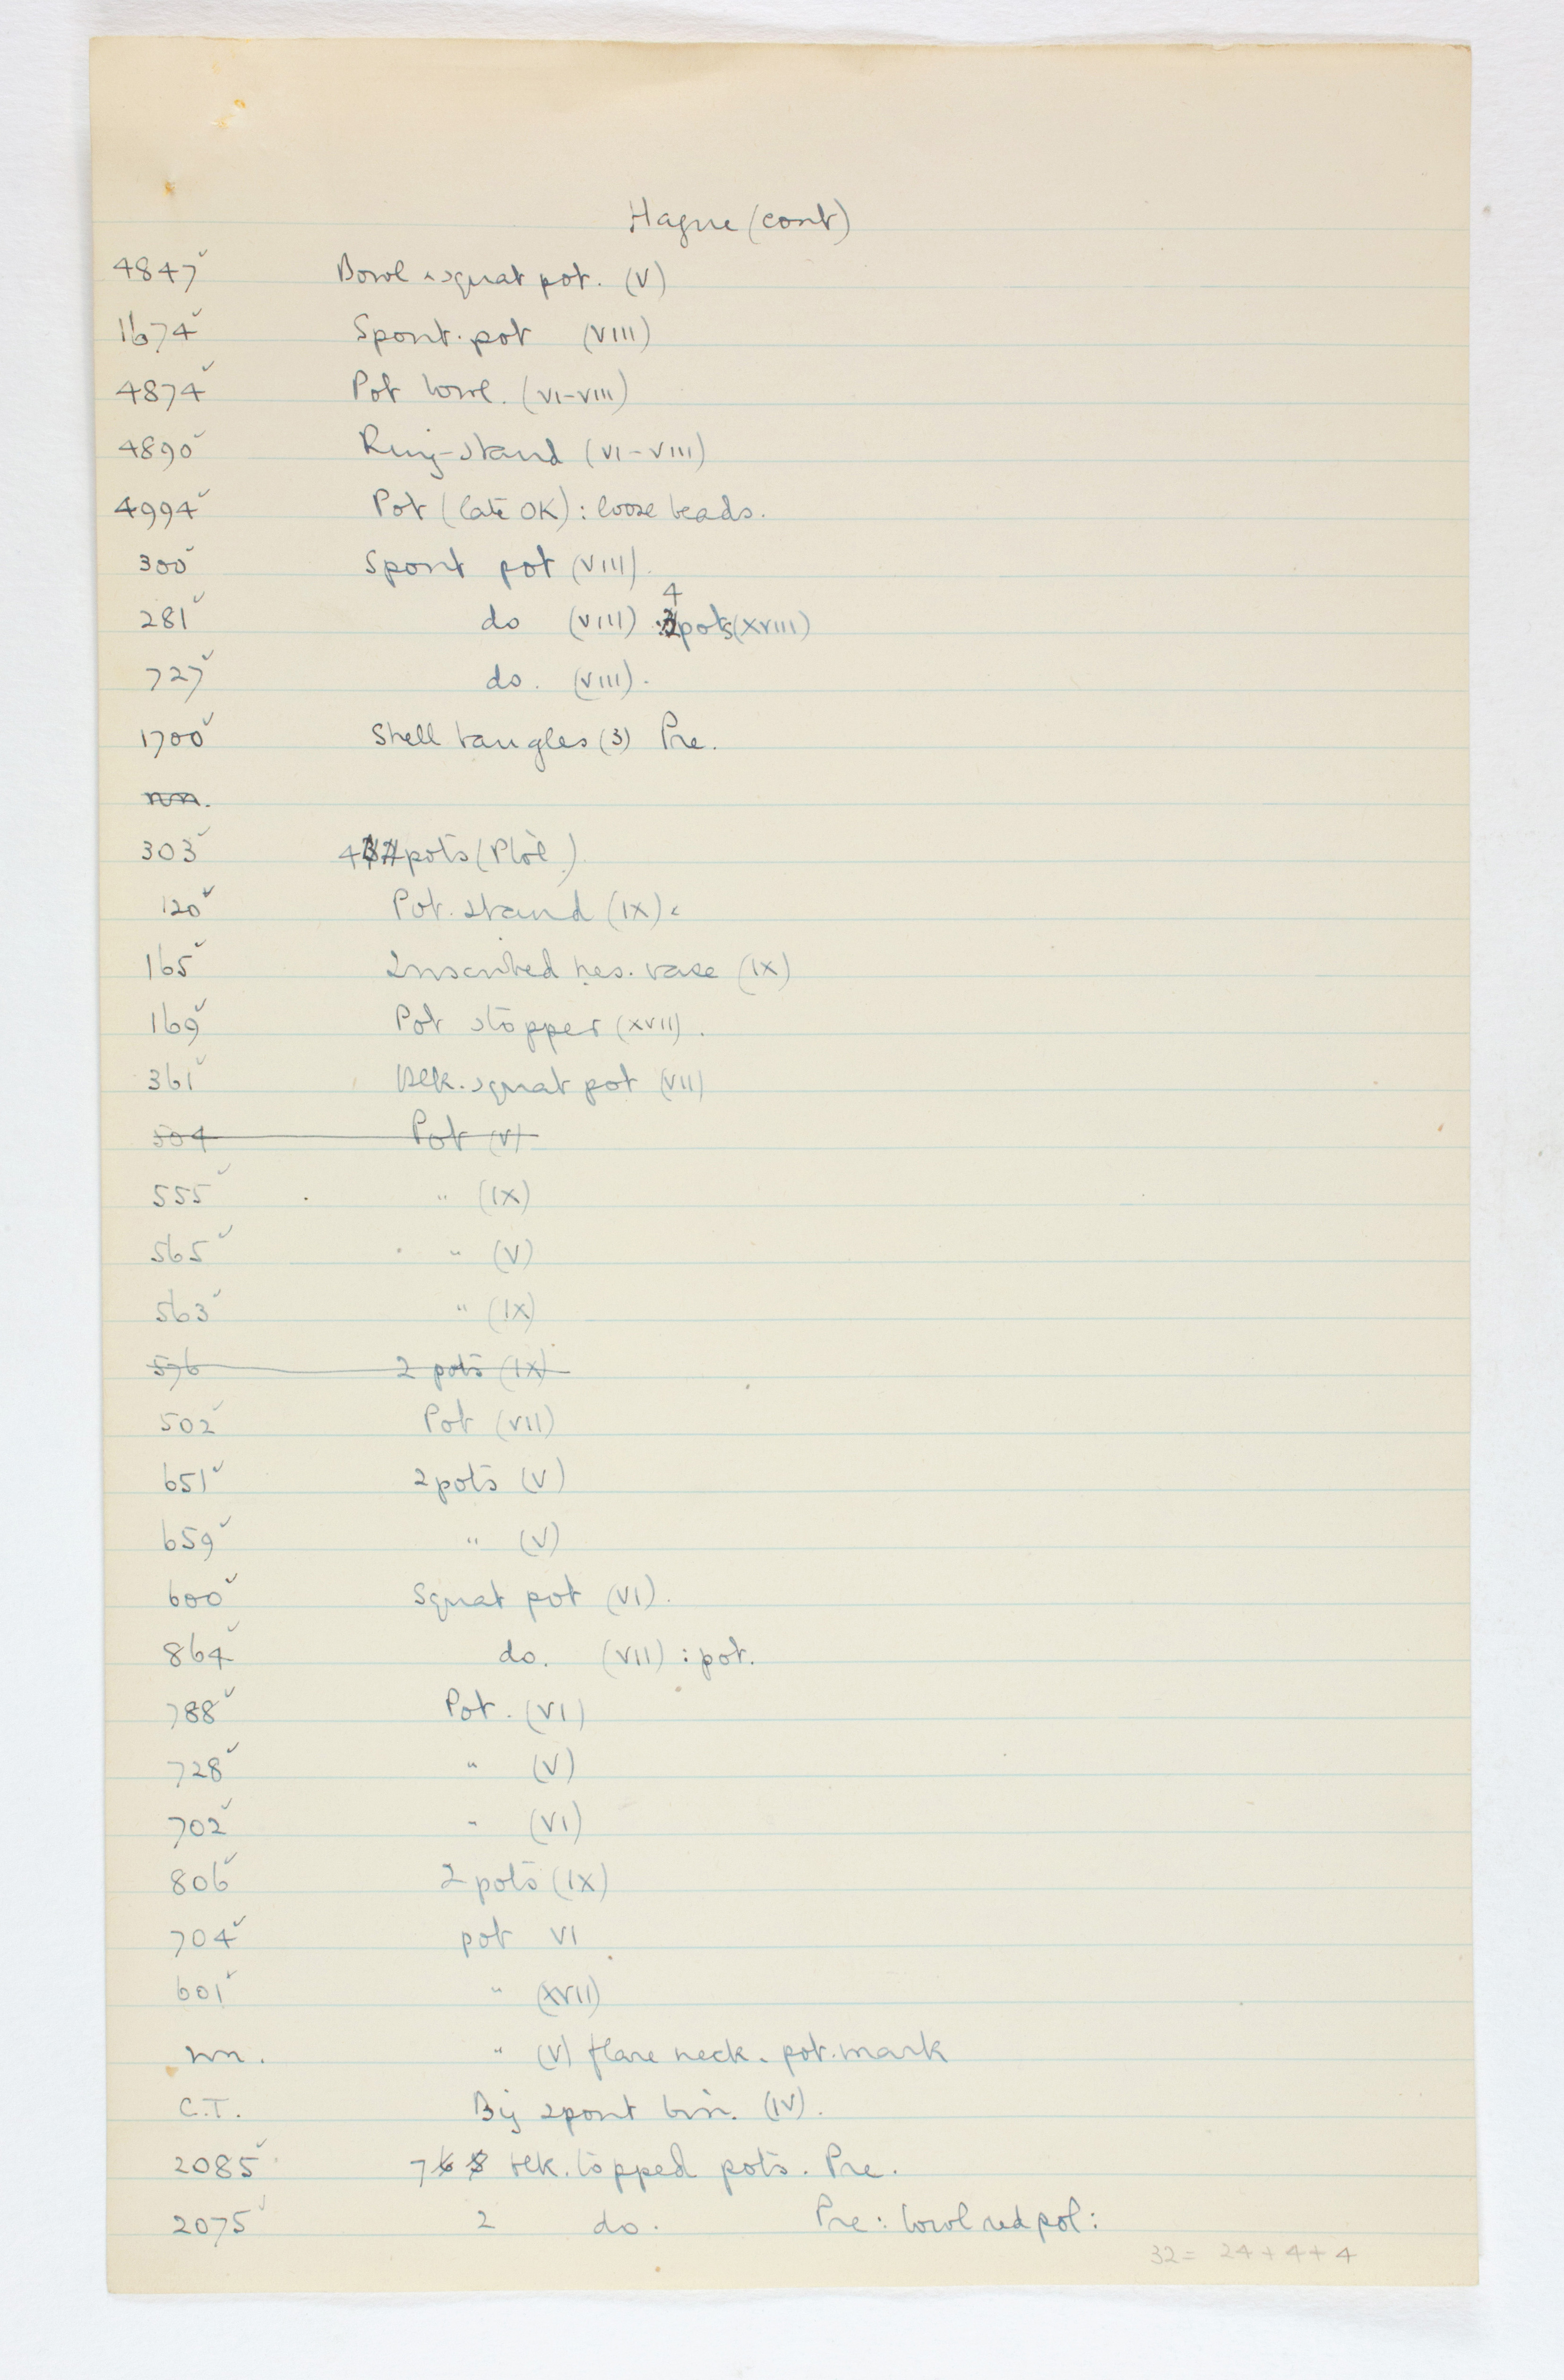 Hague (cont)
4847✓ Bowl & squat pot. (V)
1674✓ Spout. pot (VIII)
4874✓ Pot bowl. (VI-VIII)
4890✓ Ring-stand (VI-VIII)
4994✓ Pot (late OK): loose beads.
300✓ Spout pot (VIII).
281✓ do (VIII) : 4 pots (XVIII)
727✓ do. (VIII).
1700✓ Shell bangles (3) Pre.
nn.
303✓ 4 pots (Ptol.)
120✓ Pot. stand (IX)
165✓ Inscribed hes. vase (IX)
169✓ Pot stopper (XVII).
361✓ Blk. squat pot (VII)
504 Pot (V)
555✓ " (IX)
565✓ " (V)
563✓ " (IX)
576 2 pots (IX)
502✓ Pot (VII)
651✓ 2 pots (V)
659✓ " (V)
600✓ Squat pot (VI).
864✓ do. (VII) : pot.
788✓ Pot. (VI)
728✓ " (V)
702✓ " (VI)
806✓ 2 pots (IX)
704✓ pot VI
601✓ " (XVII)
nn. " (V) flare neck. pot. mark
C.T. Big spout bin. (IV).
2085✓ 7 6 8 blk. topped pots. Pre.
2075✓ 2 do. Pre: bowl red pol:
32 = 24 + 4 + 4